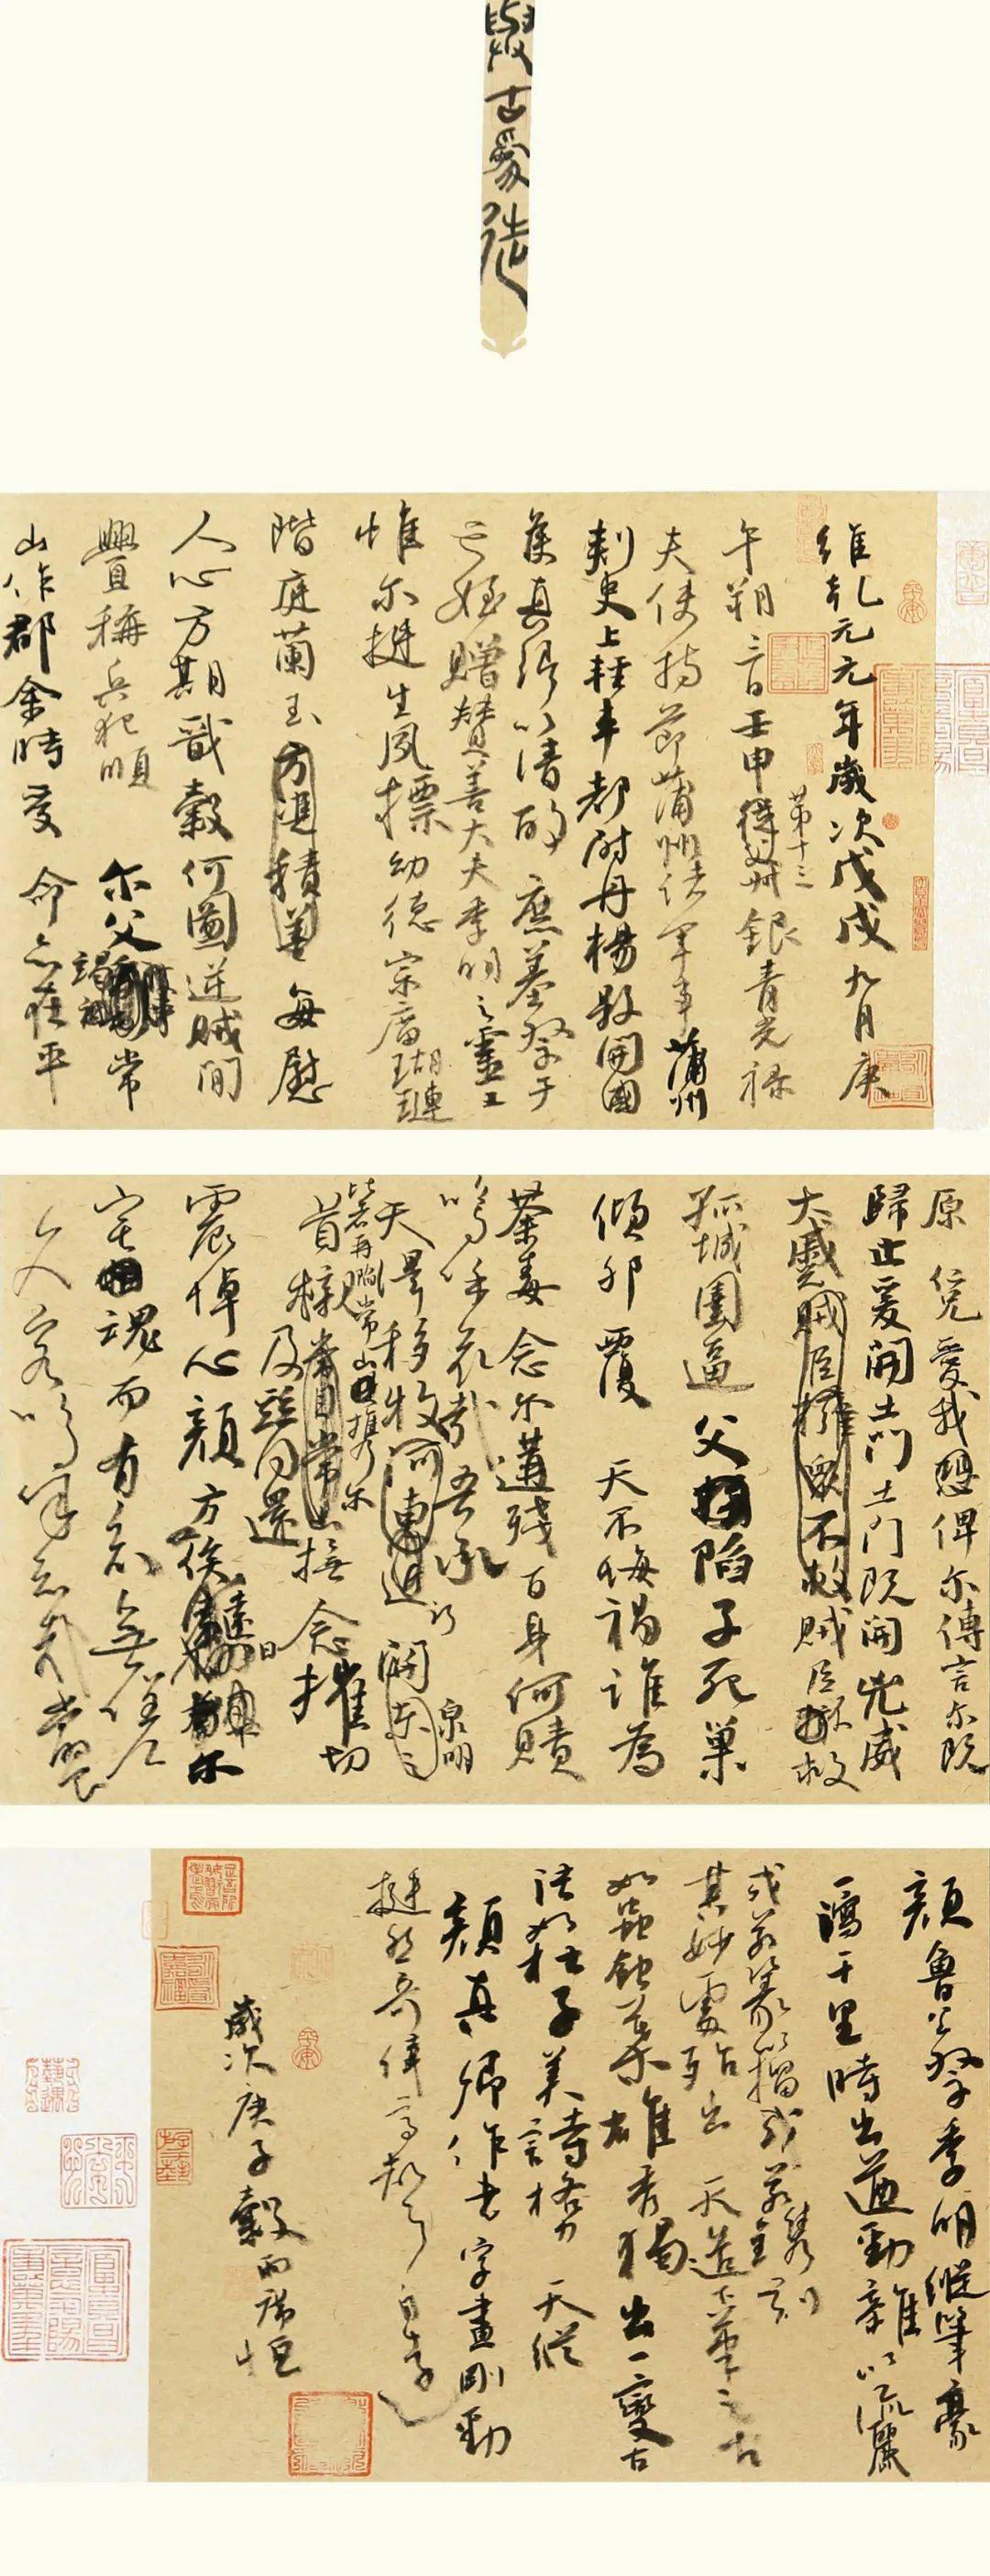 古
維乾元元年歲次戊戌九月庚
午朔三日壬申第十三 銀青光祿
夫使持節蒲州諸軍事蒲州
刺史上輕車都尉丹楊縣開國
侯真卿以清酌庶羞祭于
亡姪贈贊善大夫季明之靈曰
惟爾挺生夙標幼德宗廟瑚璉
階庭蘭玉方憑積善每慰
人心方期戩穀何圖逆賊間
釁稱兵犯順爾父竭誠常
山作郡余時受命亦在平
原仁兄愛我俾爾傳言爾既
歸止爰開土門土門既開兇威
大蹙賊臣擁眾不救賊臣不救
孤城圍逼父陷子死巢
傾卵覆天不悔禍誰為
荼毒念爾遘殘百身何贖
嗚呼哀哉吾承
天澤移牧河東近泉明
比者再陷常山攜爾
首櫬及茲同還撫念摧切
震悼心顏方俟遠日爾
魂而有知無嗟久
客嗚呼哀哉尚饗
顏魯公祭季明縱筆豪
瀉千里時出遒勁雜以流麗
或若篆籀或若鐫刻
其妙處殆出天造
如蟲蝕葉 雄秀獨出一變古
法如杜子美詩格力天縱
顏真卿作書字畫剛勁
挺然奇偉
歲次庚子穀雨